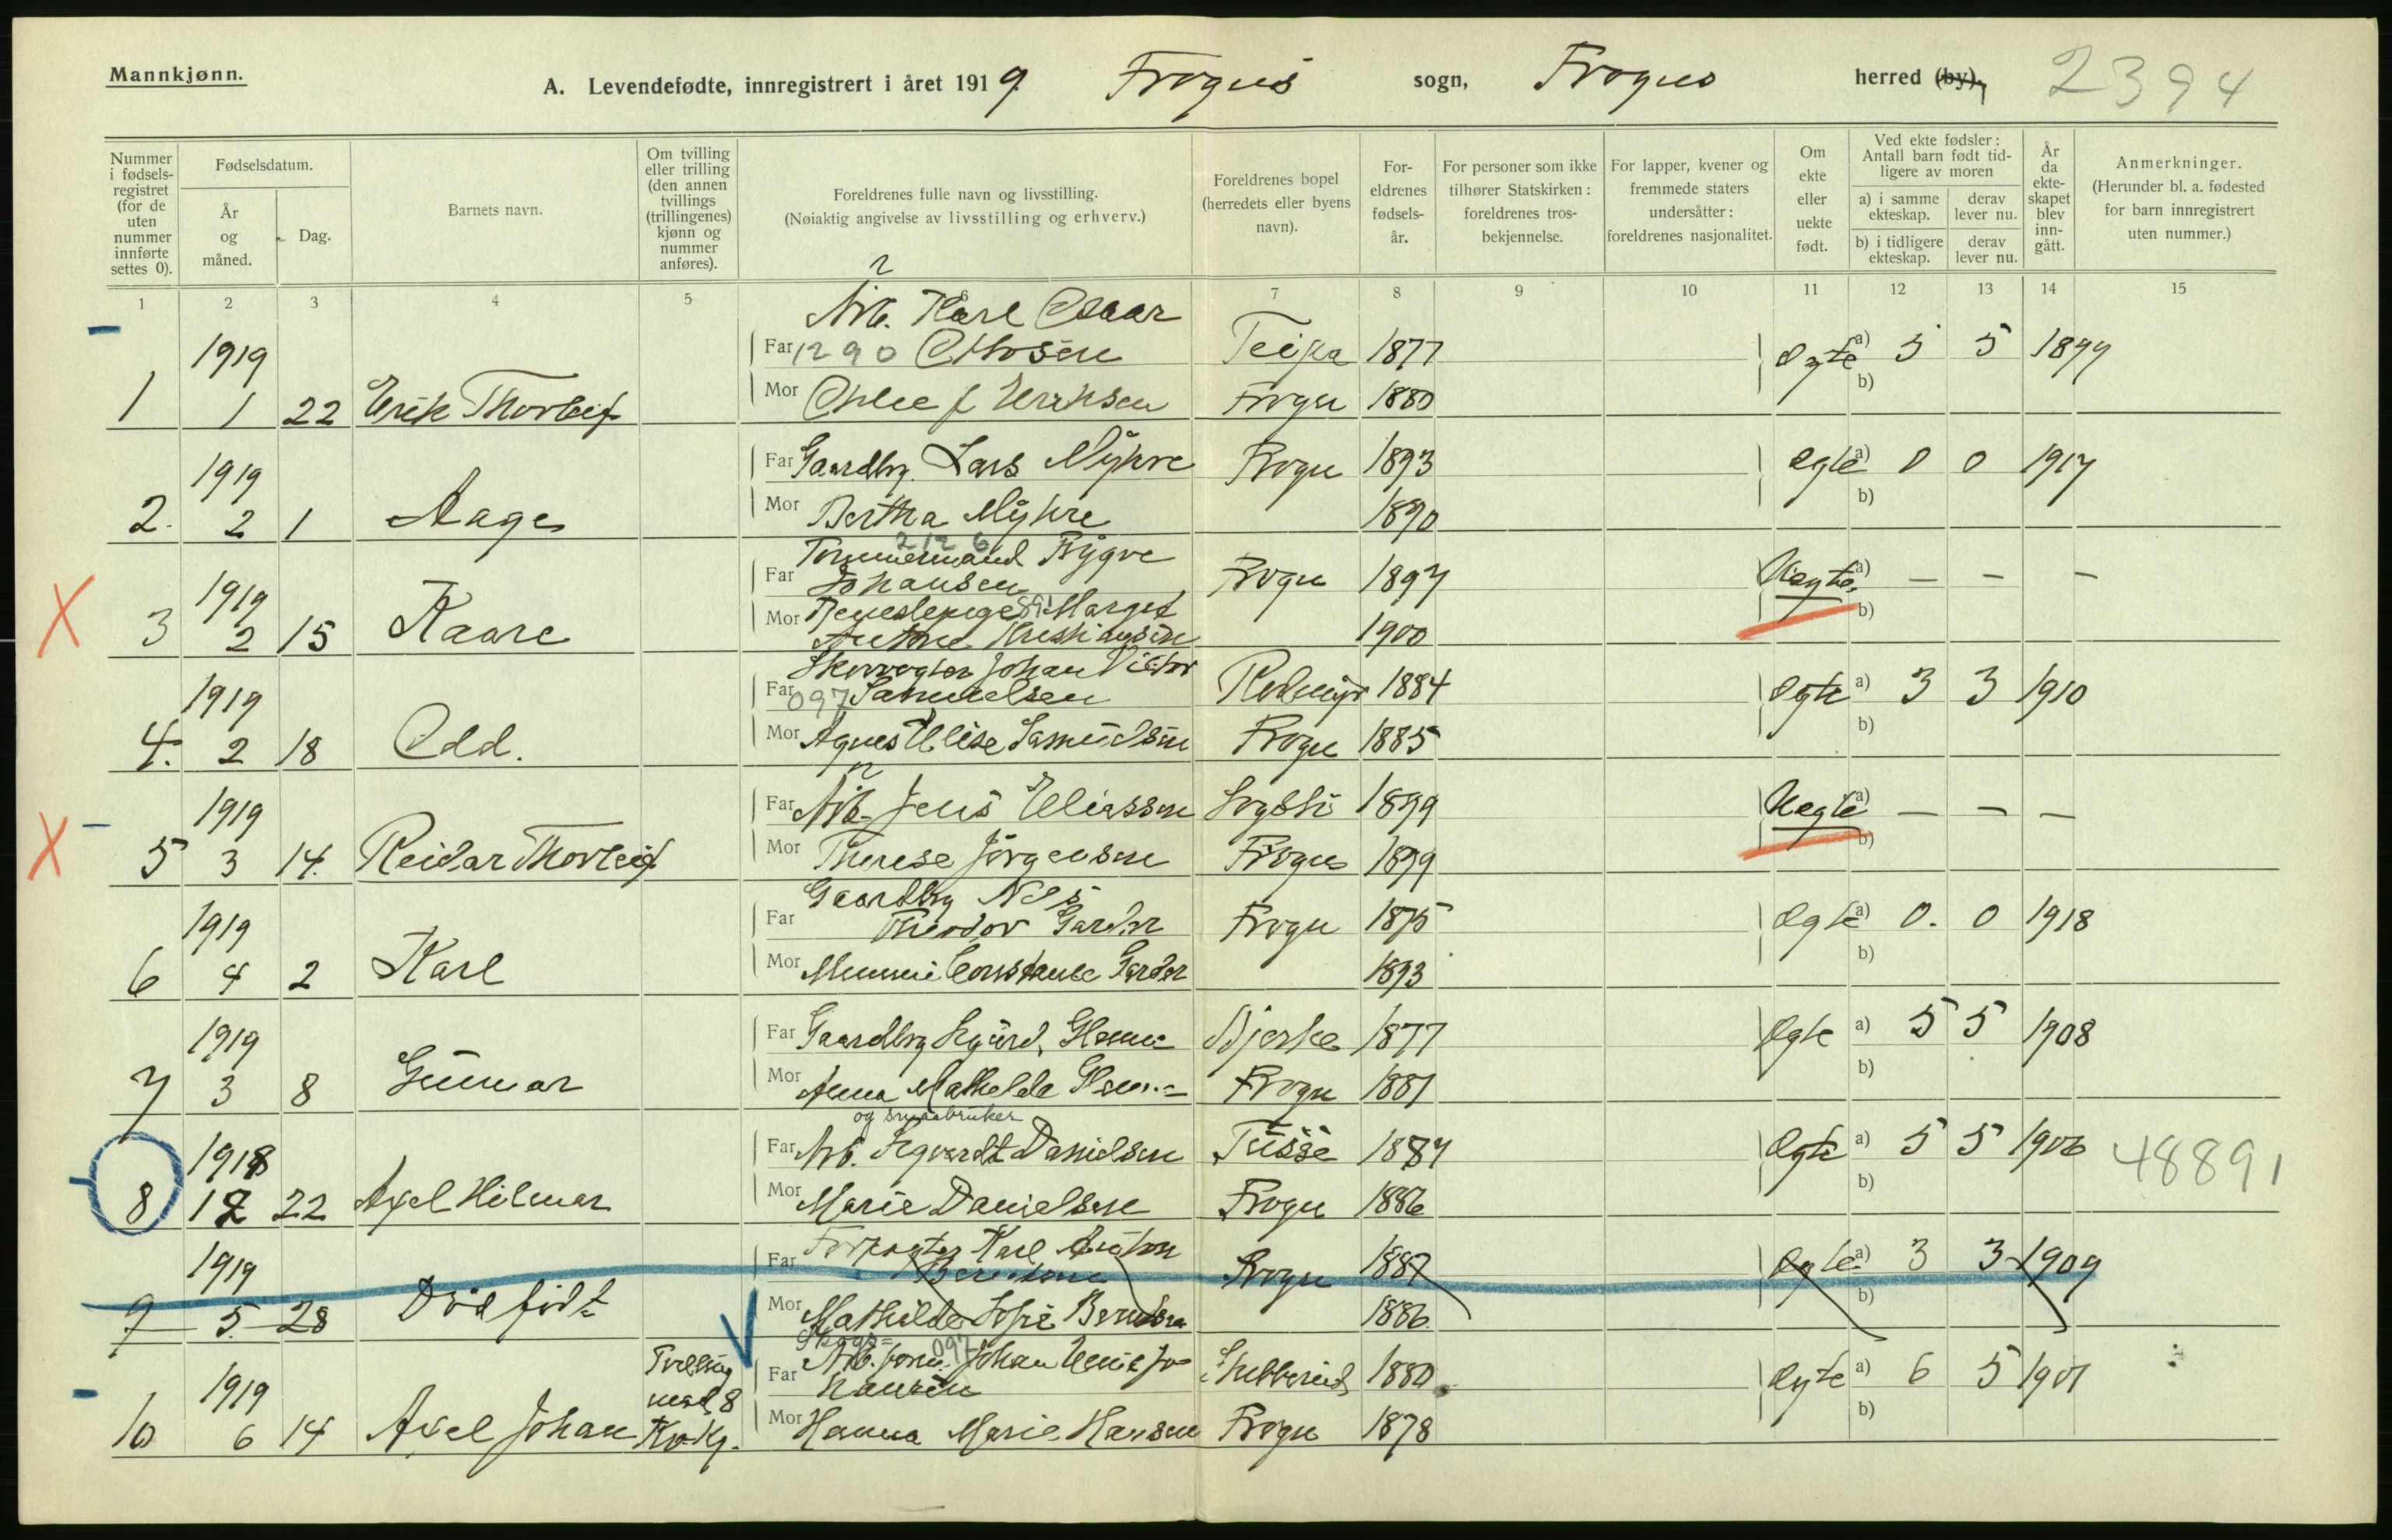 Mannkjønn.
A. Levendefødte, innregistrert i året 1919 Frogns sogn, Frogns herred (by). 2394
Nummer i fødsels-registret (for de uten nummer innførte settes 0).
Fødselsdatum.
År og måned.
Dag.
Barnets navn.
Om tvilling eller trilling (den annen tvillings (trillingenes) kjønn og nummer anføres).
Foreldrenes fulle navn og livsstilling.
(Nøiaktig angivelse av livsstilling og erhverv.)
Foreldrenes bopel (herredets eller byens navn).
For-eldrenes fødsels-år.
For personer som ikke tilhører Statskirken: foreldrenes tros-bekjennelse.
For lapper, kvener og fremmede staters undersåtter: foreldrenes nasjonalitet.
Om ekte eller uekte født.
Ved ekte fødsler: Antall barn født tid-ligere av moren
a) i samme ekteskap.
derav lever nu.
b) i tidligere ekteskap.
derav lever nu.
År da ekte-skapet blev inn-gått.
Anmerkninger.
(Herunder bl. a. fødested for barn innregistrert uten nummer.)
1 2 3 4 5 6 7 8 9 10 11 12 13 14 15
Arb. Karl Oscar
1919 Far 1290 Ottosen 1877 Ægte a) 5 5 1899
1 1 22 Erik Thorleif Mor Frogn 1880 b)
1919 Far Gaardbr. Lars Myhre Frogn 1893 Ægte a) 0 0 1917
2. 2 1 Aage Mor Bertha Myhre 1890 b)
2126
Tømmermand Trygve
1919 Far Johansen Frogn 1897 Uægte a) — — —
3 2 15 Kaare Mor Margit 1900 b)
Skovvogter Johan Victor
1919 Far 097 Samuelsen 1884 Ægte a) 3 3 1910
4. 2 18 Odd. Mor Agnes Elise Samuelsen Frogn 1885 b)
1919 Far Arb. Jens Eliassen 1899 Uægte a) — — —
5 3 14. Reidar Thorleif Mor Therese Jørgensen Frogn 1899 b)
Gaardbr Nils
1919 Far Theodor Garder Frogn 1875 Ægte a) 0. 0 1918
6 4 2 Karl Mor Constance Garder 1893 b)
1919 Far Gaardbr Sigurd Glenne Bjerke 1877 Ægte a) 5 5 1908
7 3 8 Gunnar Mor Anna Mathilde Glenne Frogn 1881 b)
og småabruker
1918 Far Arb. Sigvardt Danielsen Tusse 1884 Ægte a) 5 5 1906 48891
8 12 22 Axel Hilmar Mor Marie Danielsen Frogn 1886 b)
1919 Far Karl Anton Frogn 1887 Ægte a) 3 3 1909
9 5. 28 Dødfødt Mor Mathilde Sofie Berntsen 1886 b)
Skogs= 097
1919 Tvilling Far Arb. Johan Emil Jo- 1880 Ægte a) 6 5 1901
med 8 hansen
10 6 14 Axel Johan Kvkj. Mor Hanna Marie Hansen Frogn 1878 b)